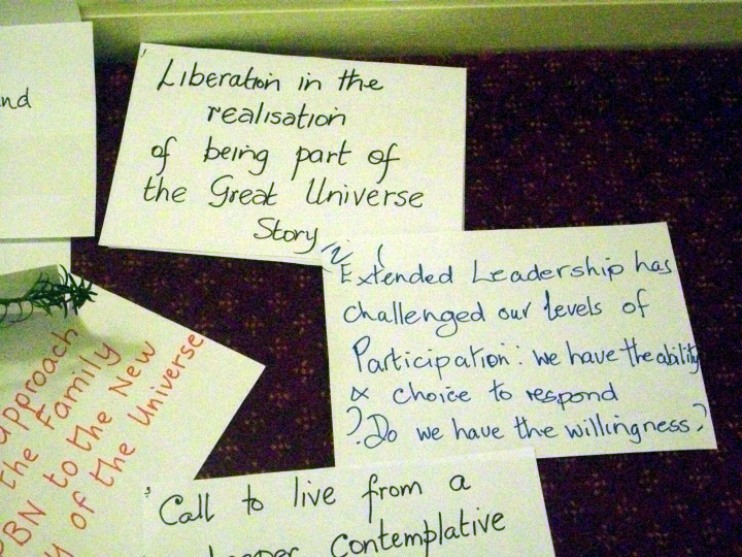 nd
Liberation in the
realisation
of being part of
the Great Universe
Story
Extended Leadership has
challenged our levels of
Participation: we have the ability
& choice to respond
? Do we have the willingness?
approach
the Family
PBN to the New
of the Universe
Call to live from a
deeper contemplative